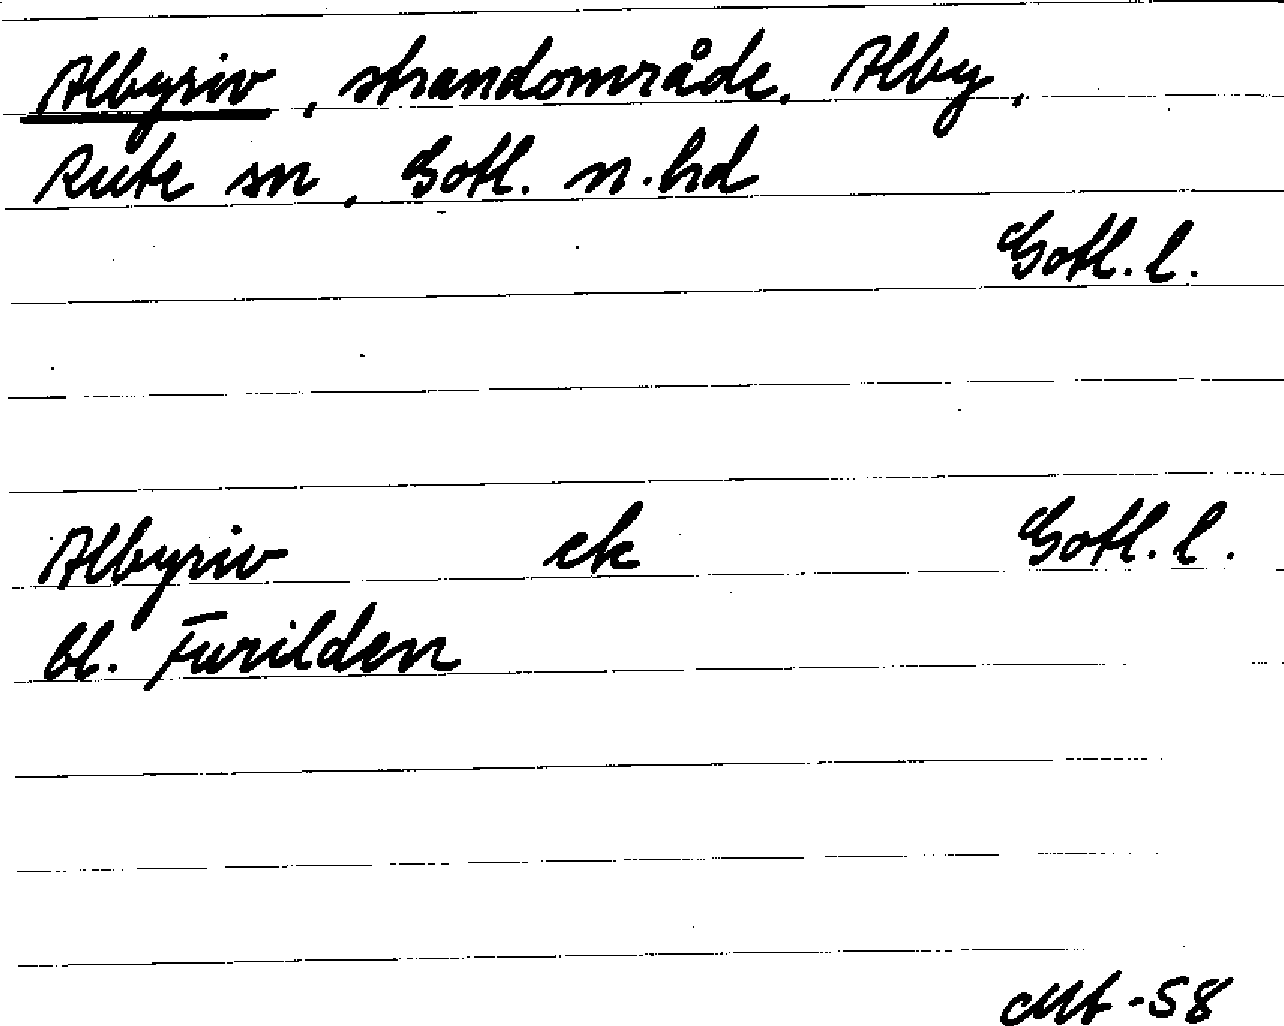 Albyriv, strandområde, Alby,
Rute sn, Gotl. n. hd
Gotl. l.
Albyriv ek Gotl. l.
bl. Furilden
-58